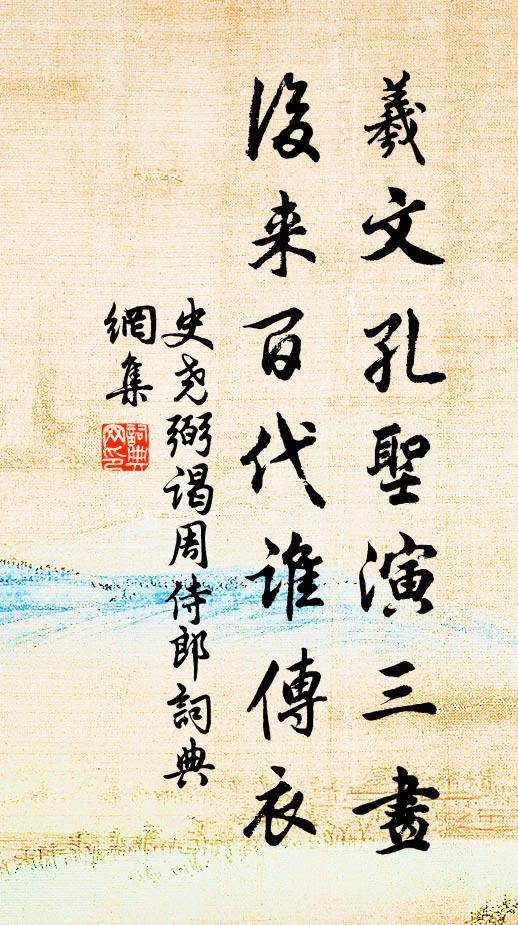 羲文孔聖演三畫
後来百代誰傳衣
史尧弼謁周侍郎詞典
網集
詞典
网印